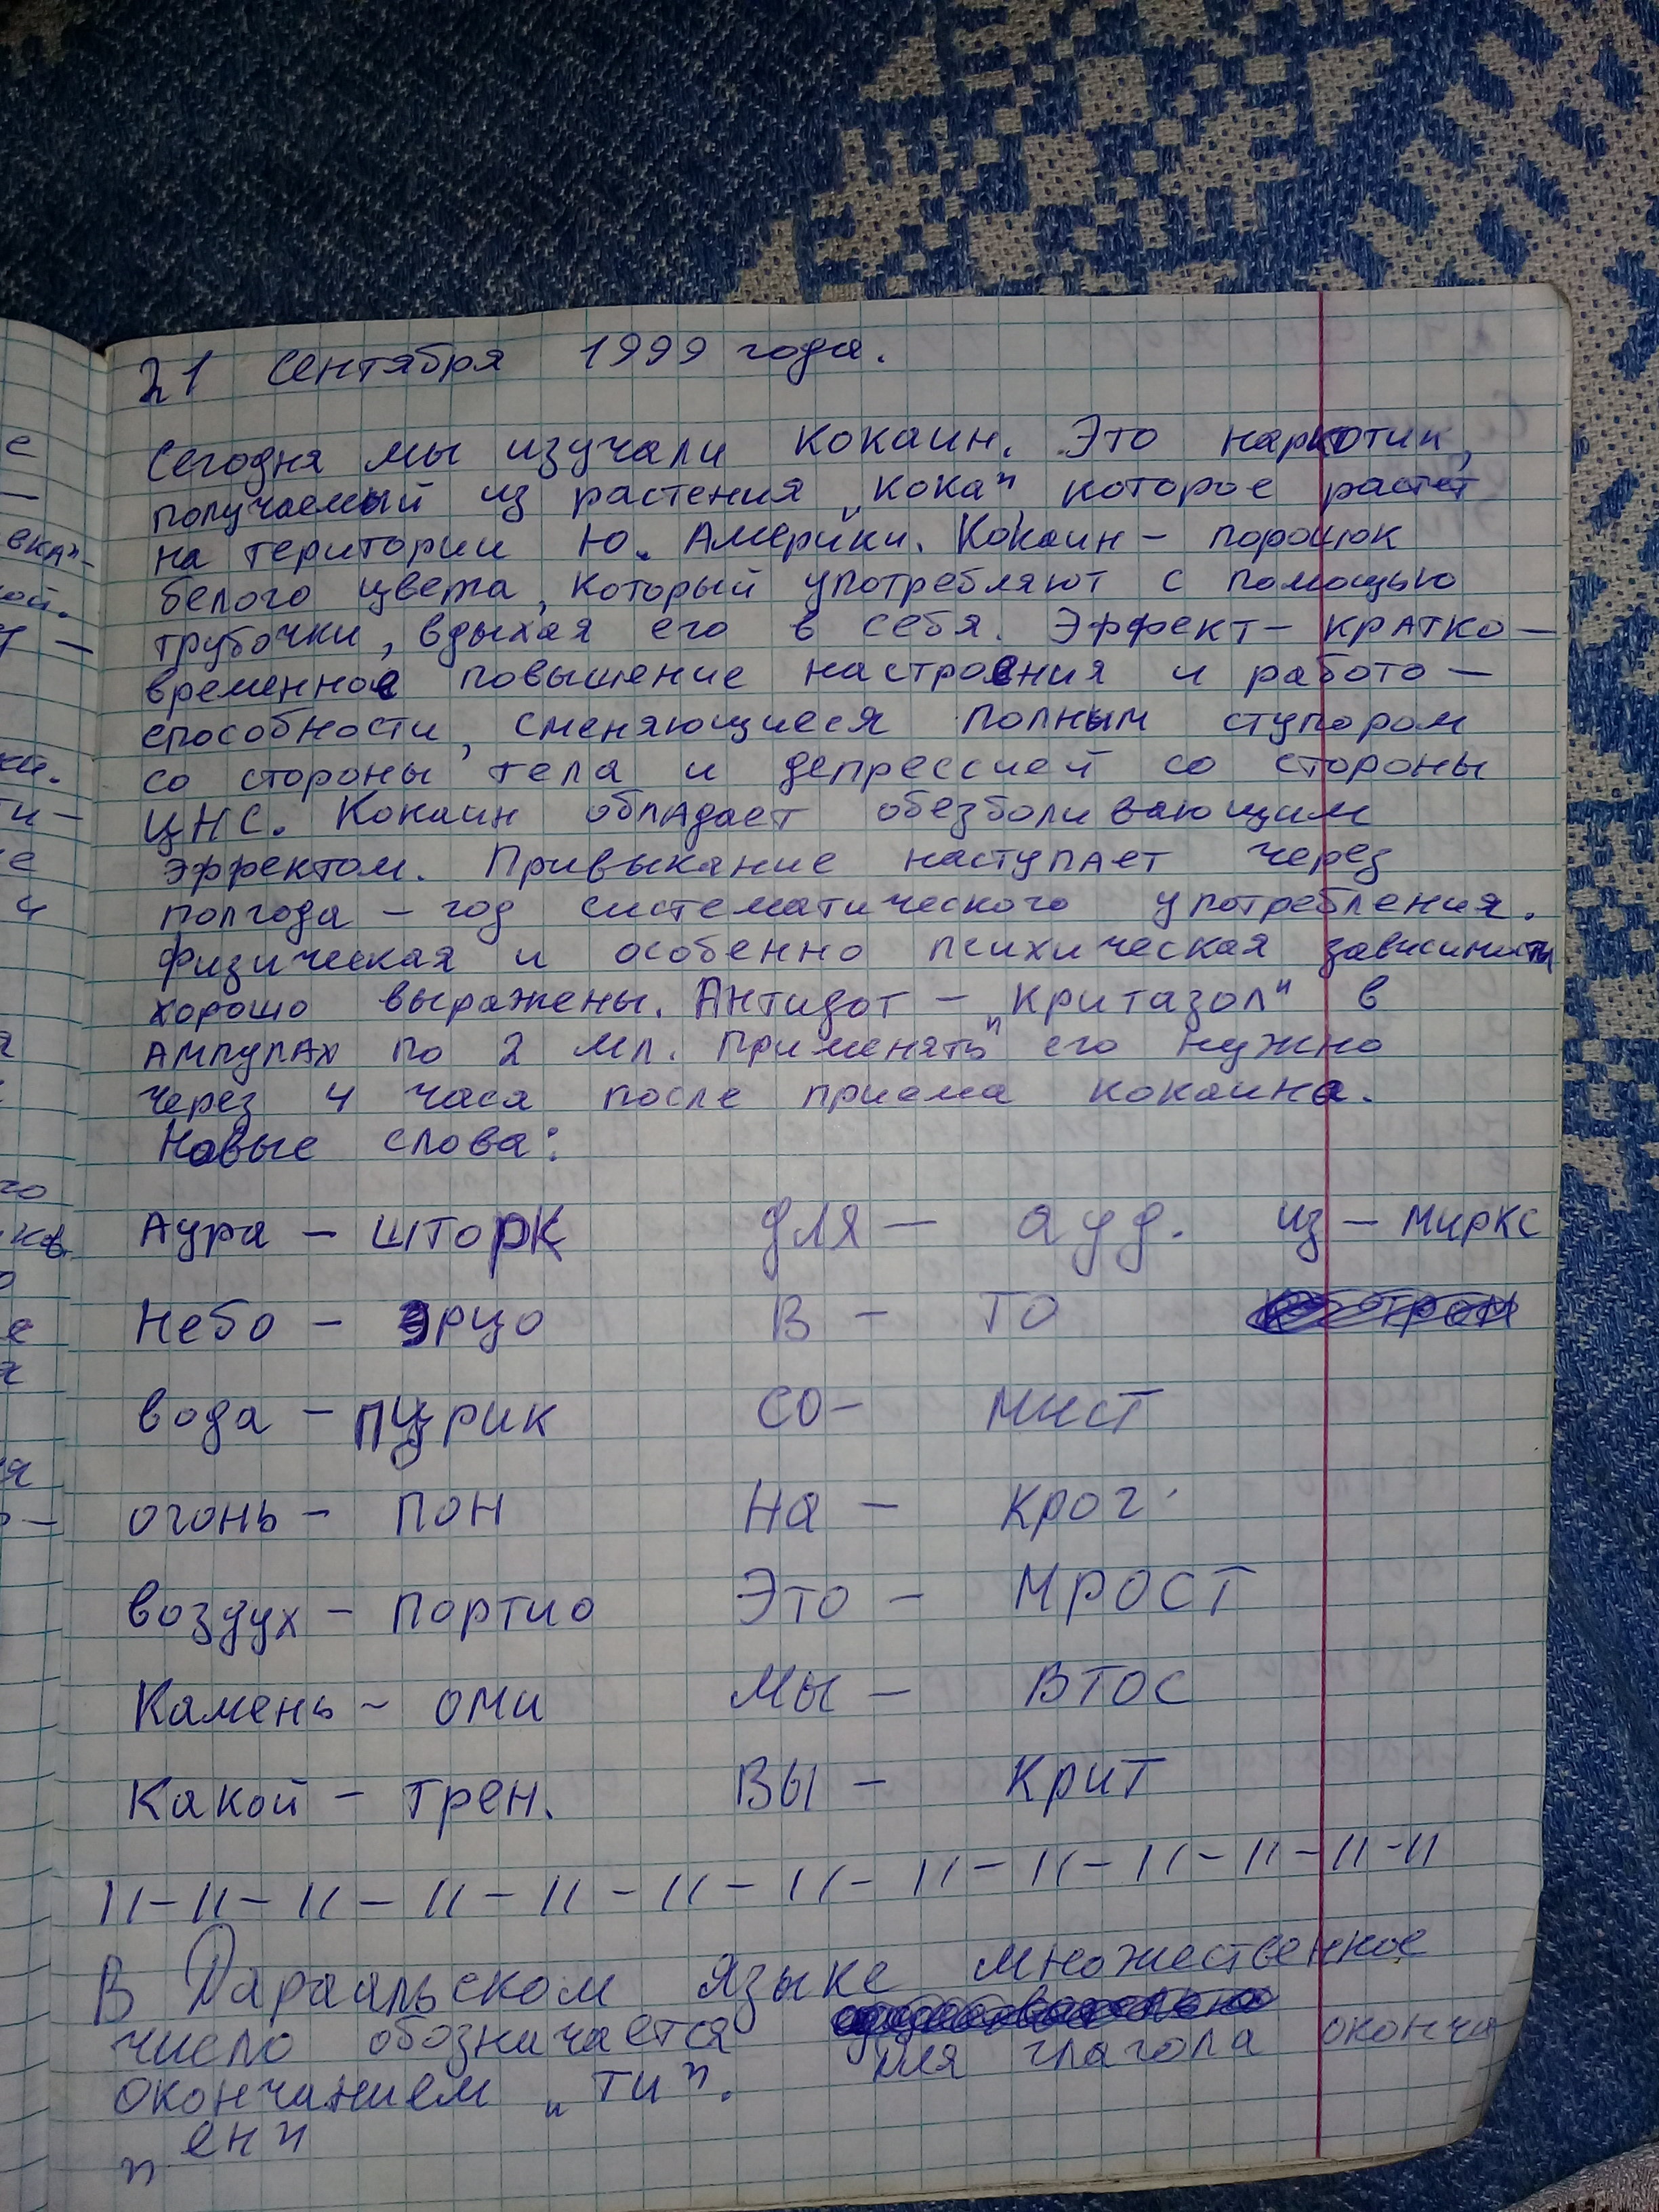 21 Сентября 1999 года.
Сегодня мы изучали кокаин. Это наркотик,
получаемый из растения „кока" которое растет
на територии Ю. Америки. Кокаин – порошок
белого цвета, который употребляют с помощью
трубочки, вдыхая его в себя. Эффект – кратко –
временное повышение настроения и работо –
способности, сменяющиеся полным ступором
со стороны тела и депрессией со стороны
ЦНС. Кокаин обладает обезболивающим
эффектом. Привыкание наступает через
полгода – год систематического употребления.
Физическая и особенно психическая зависимость
хорошо выражены. Антидот – „Критазол" в
ампулах по 2 мл. Применять его нужно
через 4 часа после приема кокаина.
Новые слова:
Аура – шторк для – ауд. из – миркс
Небо – эрцо в – то
вода – пурик со – мист
огонь – пон на – крог
воздух – портио Это – мрост
Камень – оми Мы – втос
Какой – трен. Вы – крит
11 – 11 – 11 – 11 – 11 – 11 – 11 – 11 – 11 – 11 – 11 – 11 – 11
В Дараальском языке множественное
число обозначается
окончанием „ти". для глагола оконча
„ен"